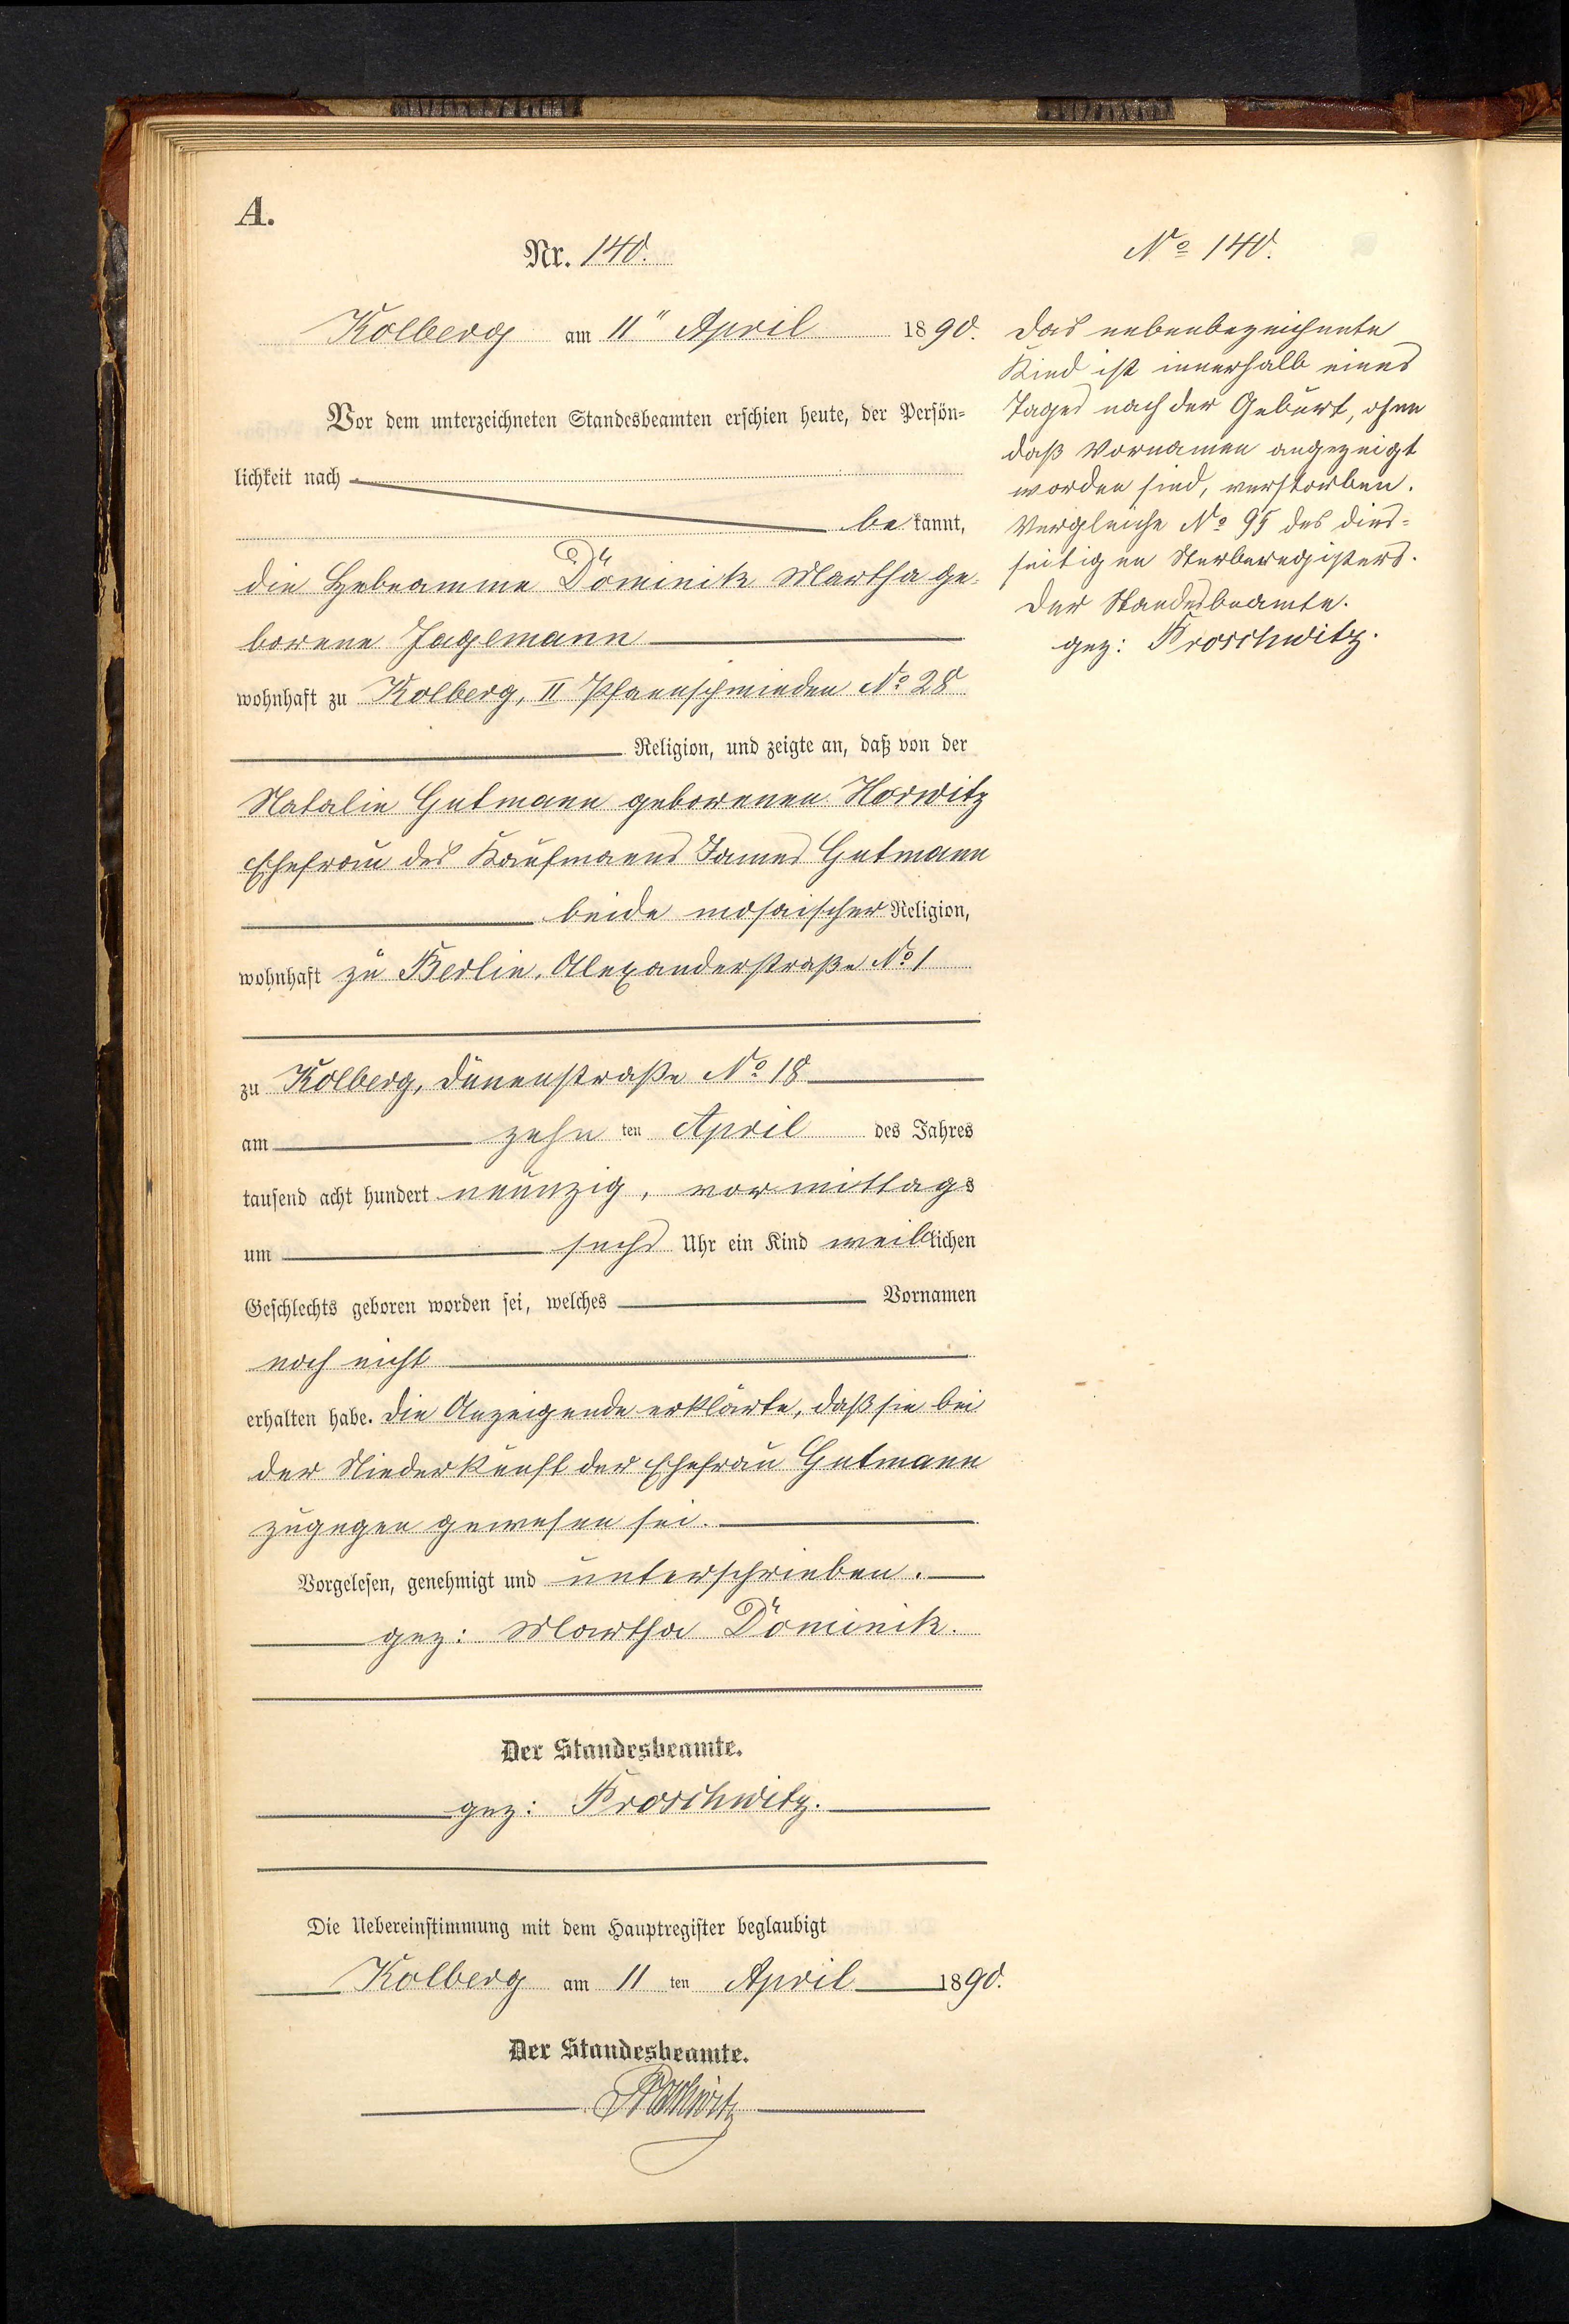 A.
Nr. 140.
Kolberg am 11" April 1890.
Vor dem unterzeichneten Standesbeamten erschien heute, der Persön=
lichkeit nach
be kannt,
die Hebeamme Dominik Martha ge-
borene Jagemann
wohnhaft zu Kolberg, II Pfannschmieden No 28
Religion, und zeigte an, daß von der
Natalie Gutmann geborenen Horwitz
Ehefrau des Kaufmanns James Gutmann
beide mosaischer Religion,
wohnhaft zu Berlin, Alexanderstraße No 1
zu Kolberg, Dünenstraße No 18
am zehn ten April des Jahres
tausend acht hundert neunzig, vormittags
um sechs Uhr ein Kind weiblichen
Geschlechts geboren worden sei, welches Vornamen
noch nicht
erhalten habe. Die Anzeigende erklärte, daß sie bei
der Niederkunft der Ehefrau Gutmann
zugegen gewesen sei.
Vorgelesen, genehmigt und unterschrieben.
gez: Martha Dominik.
Der Standesbeamte.
gez: Proschwitz.
Die Uebereinstimmung mit dem Hauptregister beglaubigt
Kolberg am 11 ten April 1890.
Der Standesbeamte.
Proschwitz
No 140.
Das nebenbezeichnete
Kind ist innerhalb eines
Tages nach der Geburt, ohne
daß Vornamen angezeigt
worden sind, verstorben.
Vergleiche No 95 des dies=
seitigen Sterberegisters.
Der Standesbeamte.
gez: Proschwitz.